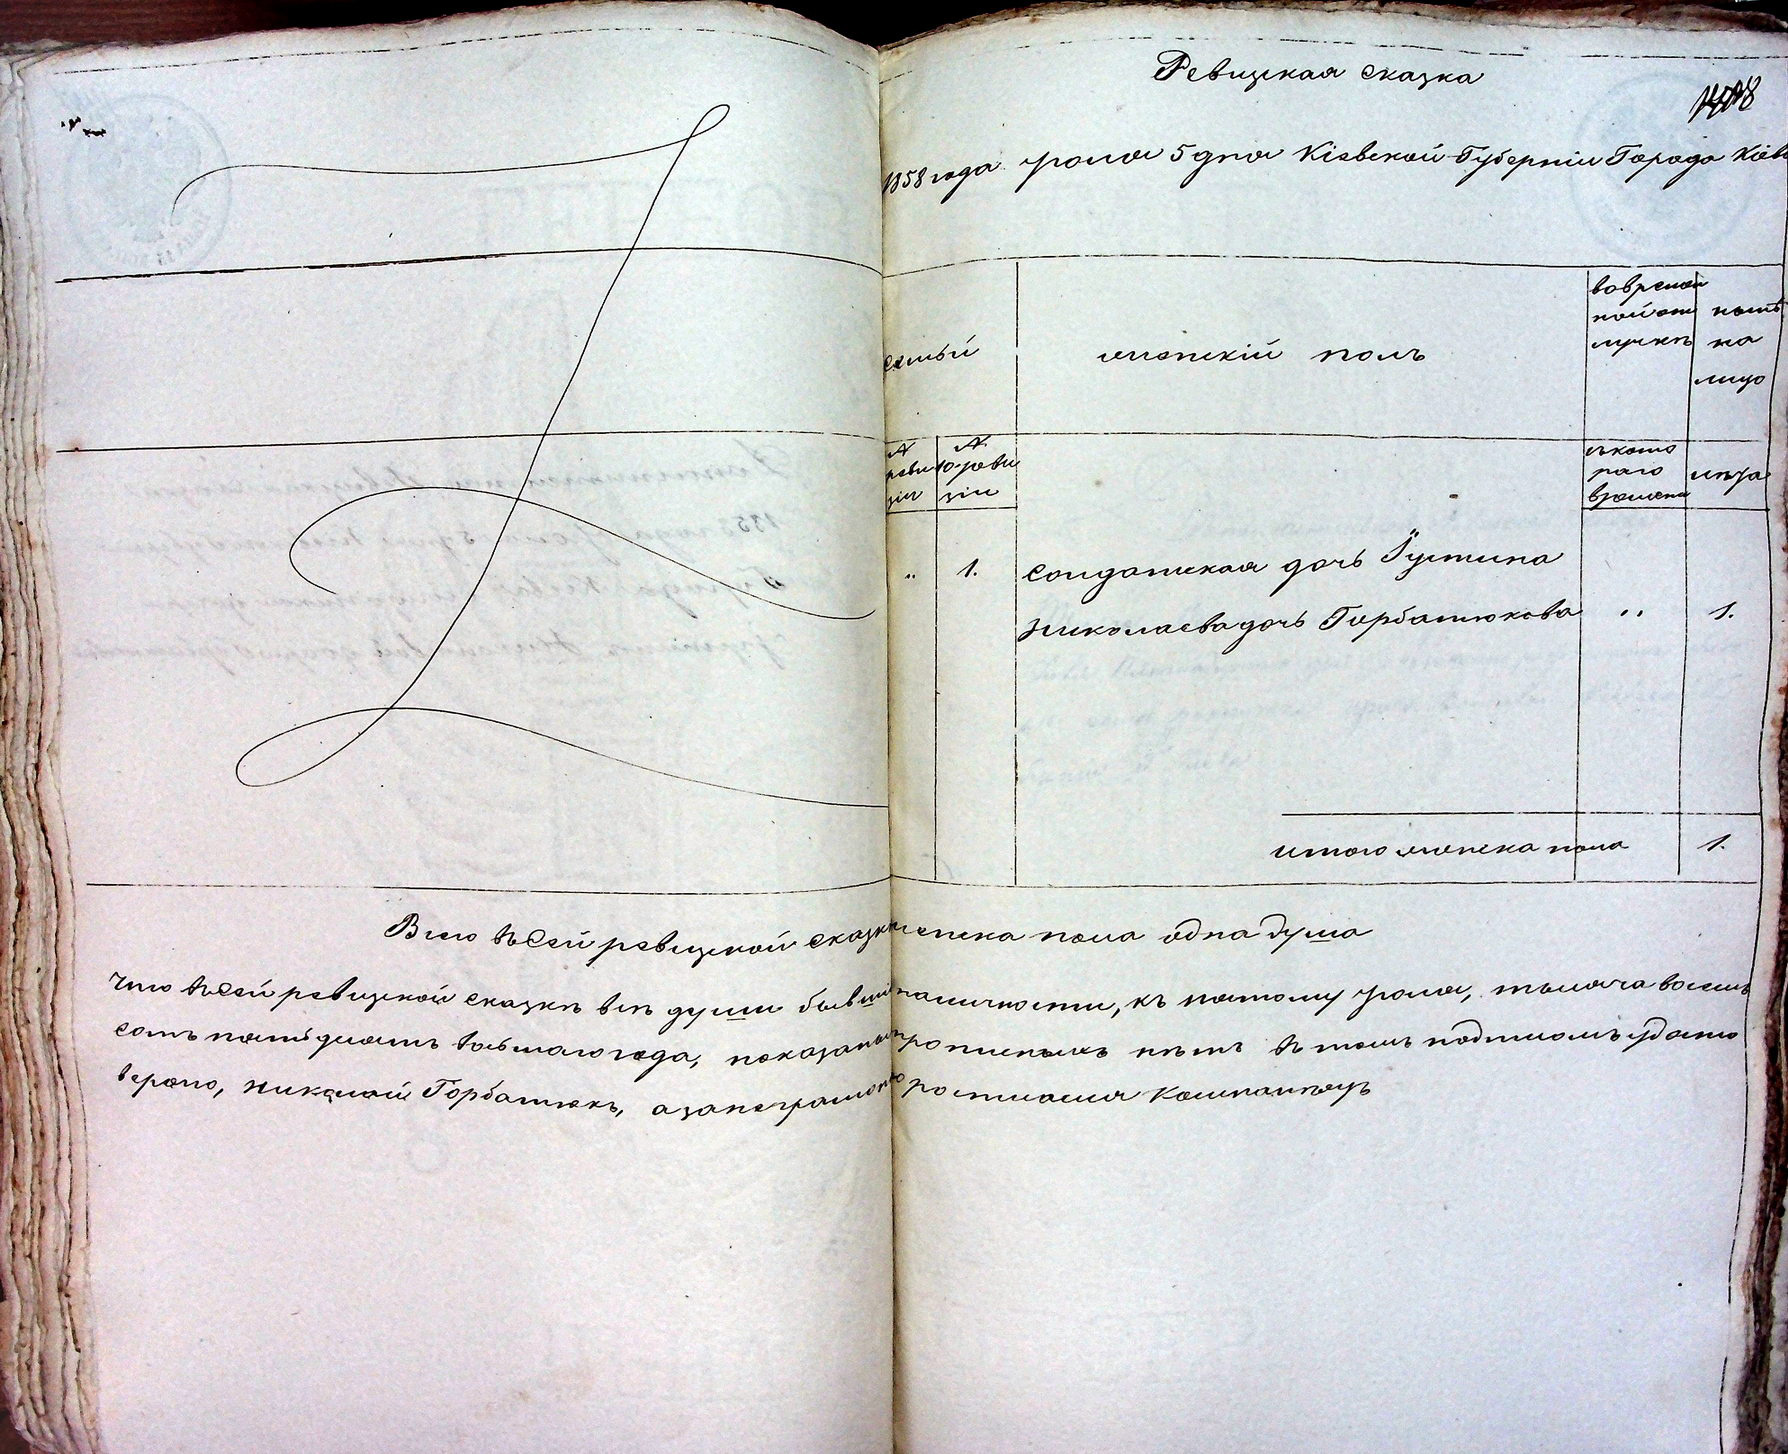 Ревизская сказка
1858 года Июля 5 дня Кіевской Губерніи Города Кіев
семьй
женскій полъ
вовремен
ной от
лучкѣ
нынѣ
на
лицо
№
реви
зіи
№
10 реви
зіи
съкото
раго
времени
лѣта
„ 1. Солдатская дочь Іустина
Николаева дочь Горбатюкова „ 1.
итого женска пола 1.
Всего въ Сей ревизской сказкѣ женска пола одна душа
Что въ Сей ревизской сказкѣ всѣ души бывшіе наличности, къ пятому Июля, тысяча восемь
сотъ пятьдесятъ восьмаго года, показаны прописныхъ нѣтъ въ томъ подписомъ удосто
веряю, Николай Горбатюкъ, а за неграмотно росписался Компанѣец